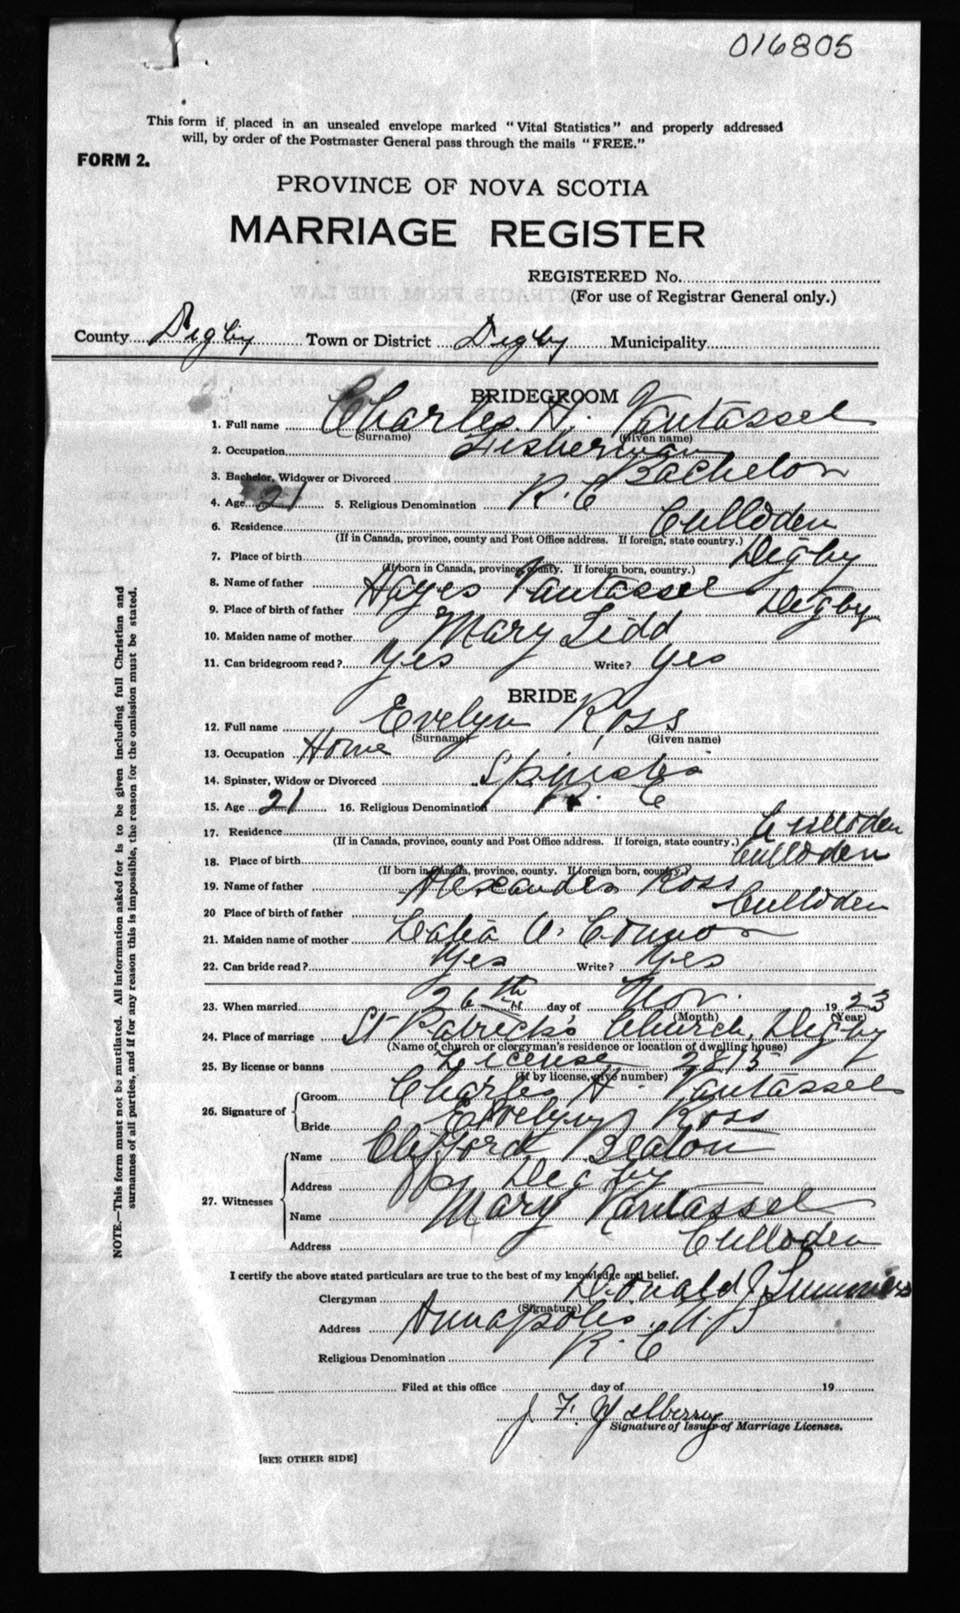 016805
This form if placed in an unsealed envelope marked "Vital Statistics" and properly addressed
will, by order of the Postmaster General pass through the mails "FREE."
FORM 2.
PROVINCE OF NOVA SCOTIA
MARRIAGE REGISTER
REGISTERED No.
(For use of Registrar General only.)
County Digby Town or District Digby Municipality
BRIDEGROOM
1. Full name Charles H. Vantassel
(Surname) (Given name)
2. Occupation Fisherman
3. Bachelor, Widower or Divorced Bachelor
4. Age 21 5. Religious Denomination R. C
6. Residence Culloden
(If in Canada, province, county and Post Office address. If foreign, state country.)
7. Place of birth Digby
(If born in Canada, province, county. If foreign born, country.)
8. Name of father Hayes Vantassel
9. Place of birth of father Digby
10. Maiden name of mother Mary
11. Can bridegroom read? Yes Write? Yes
BRIDE
12. Full name Evelyn Ross
(Surname) (Given name)
13. Occupation Home
14. Spinster, Widow or Divorced Spinster
15. Age 21 16. Religious Denomination R. C
17. Residence Culloden
(If in Canada, province, county and Post Office address. If foreign, state country.)
18. Place of birth Culloden
(If born in Canada, province, county. If foreign born, country.)
19. Name of father Alexander Ross
20 Place of birth of father Culloden
21. Maiden name of mother O. Connor
22. Can bride read? Yes Write? Yes
23. When married 26th day of Nov. 1923
(Month) (Year)
24. Place of marriage St Patrick's Church, Digby
(Name of church or clergyman's residence or location of dwelling house)
25. By license or banns License 2815
(If by license, give number)
26. Signature of Groom Charles H. Vantassel
Bride Evelyn Ross
27. Witnesses Name Clifford Beaton
Address Digby
Name Mary Vantassel
Address Culloden
I certify the above stated particulars are true to the best of my knowledge and belief.
Clergyman Donald J Summers
(Signature)
Address Annapolis. N. S
Religious Denomination R. C
Filed at this office day of 19
J. F.
Signature of Issuer of Marriage Licenses.
[SEE OTHER SIDE]
NOTE.—This form must not be mutilated. All information asked for is to be given including full Christian and
surnames of all parties, and if for any reason this is impossible, the reason for the omission must be stated.